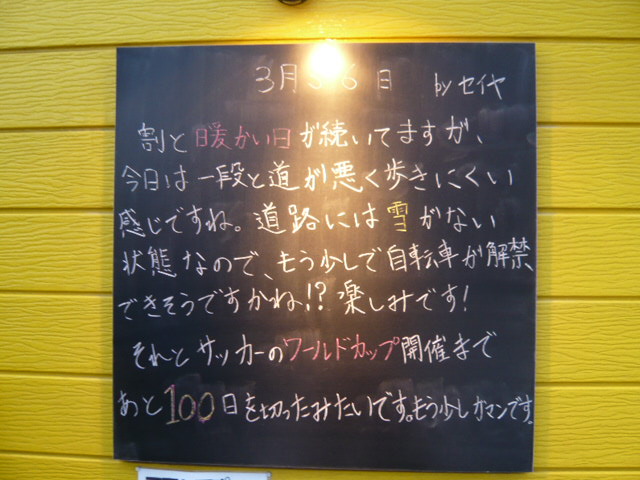 3月 6日 by セイヤ
割と暖かい日が続いてますが、
今日は一段と道が悪く歩きにくい
感じですね。道路には雪がない
状態なので、もう少しで自転車が解禁
できそうですかね!?楽しみです!
それとサッカーのワールドカップ開催まで
あと100日を切ったみたいです。もう少しガマンです。